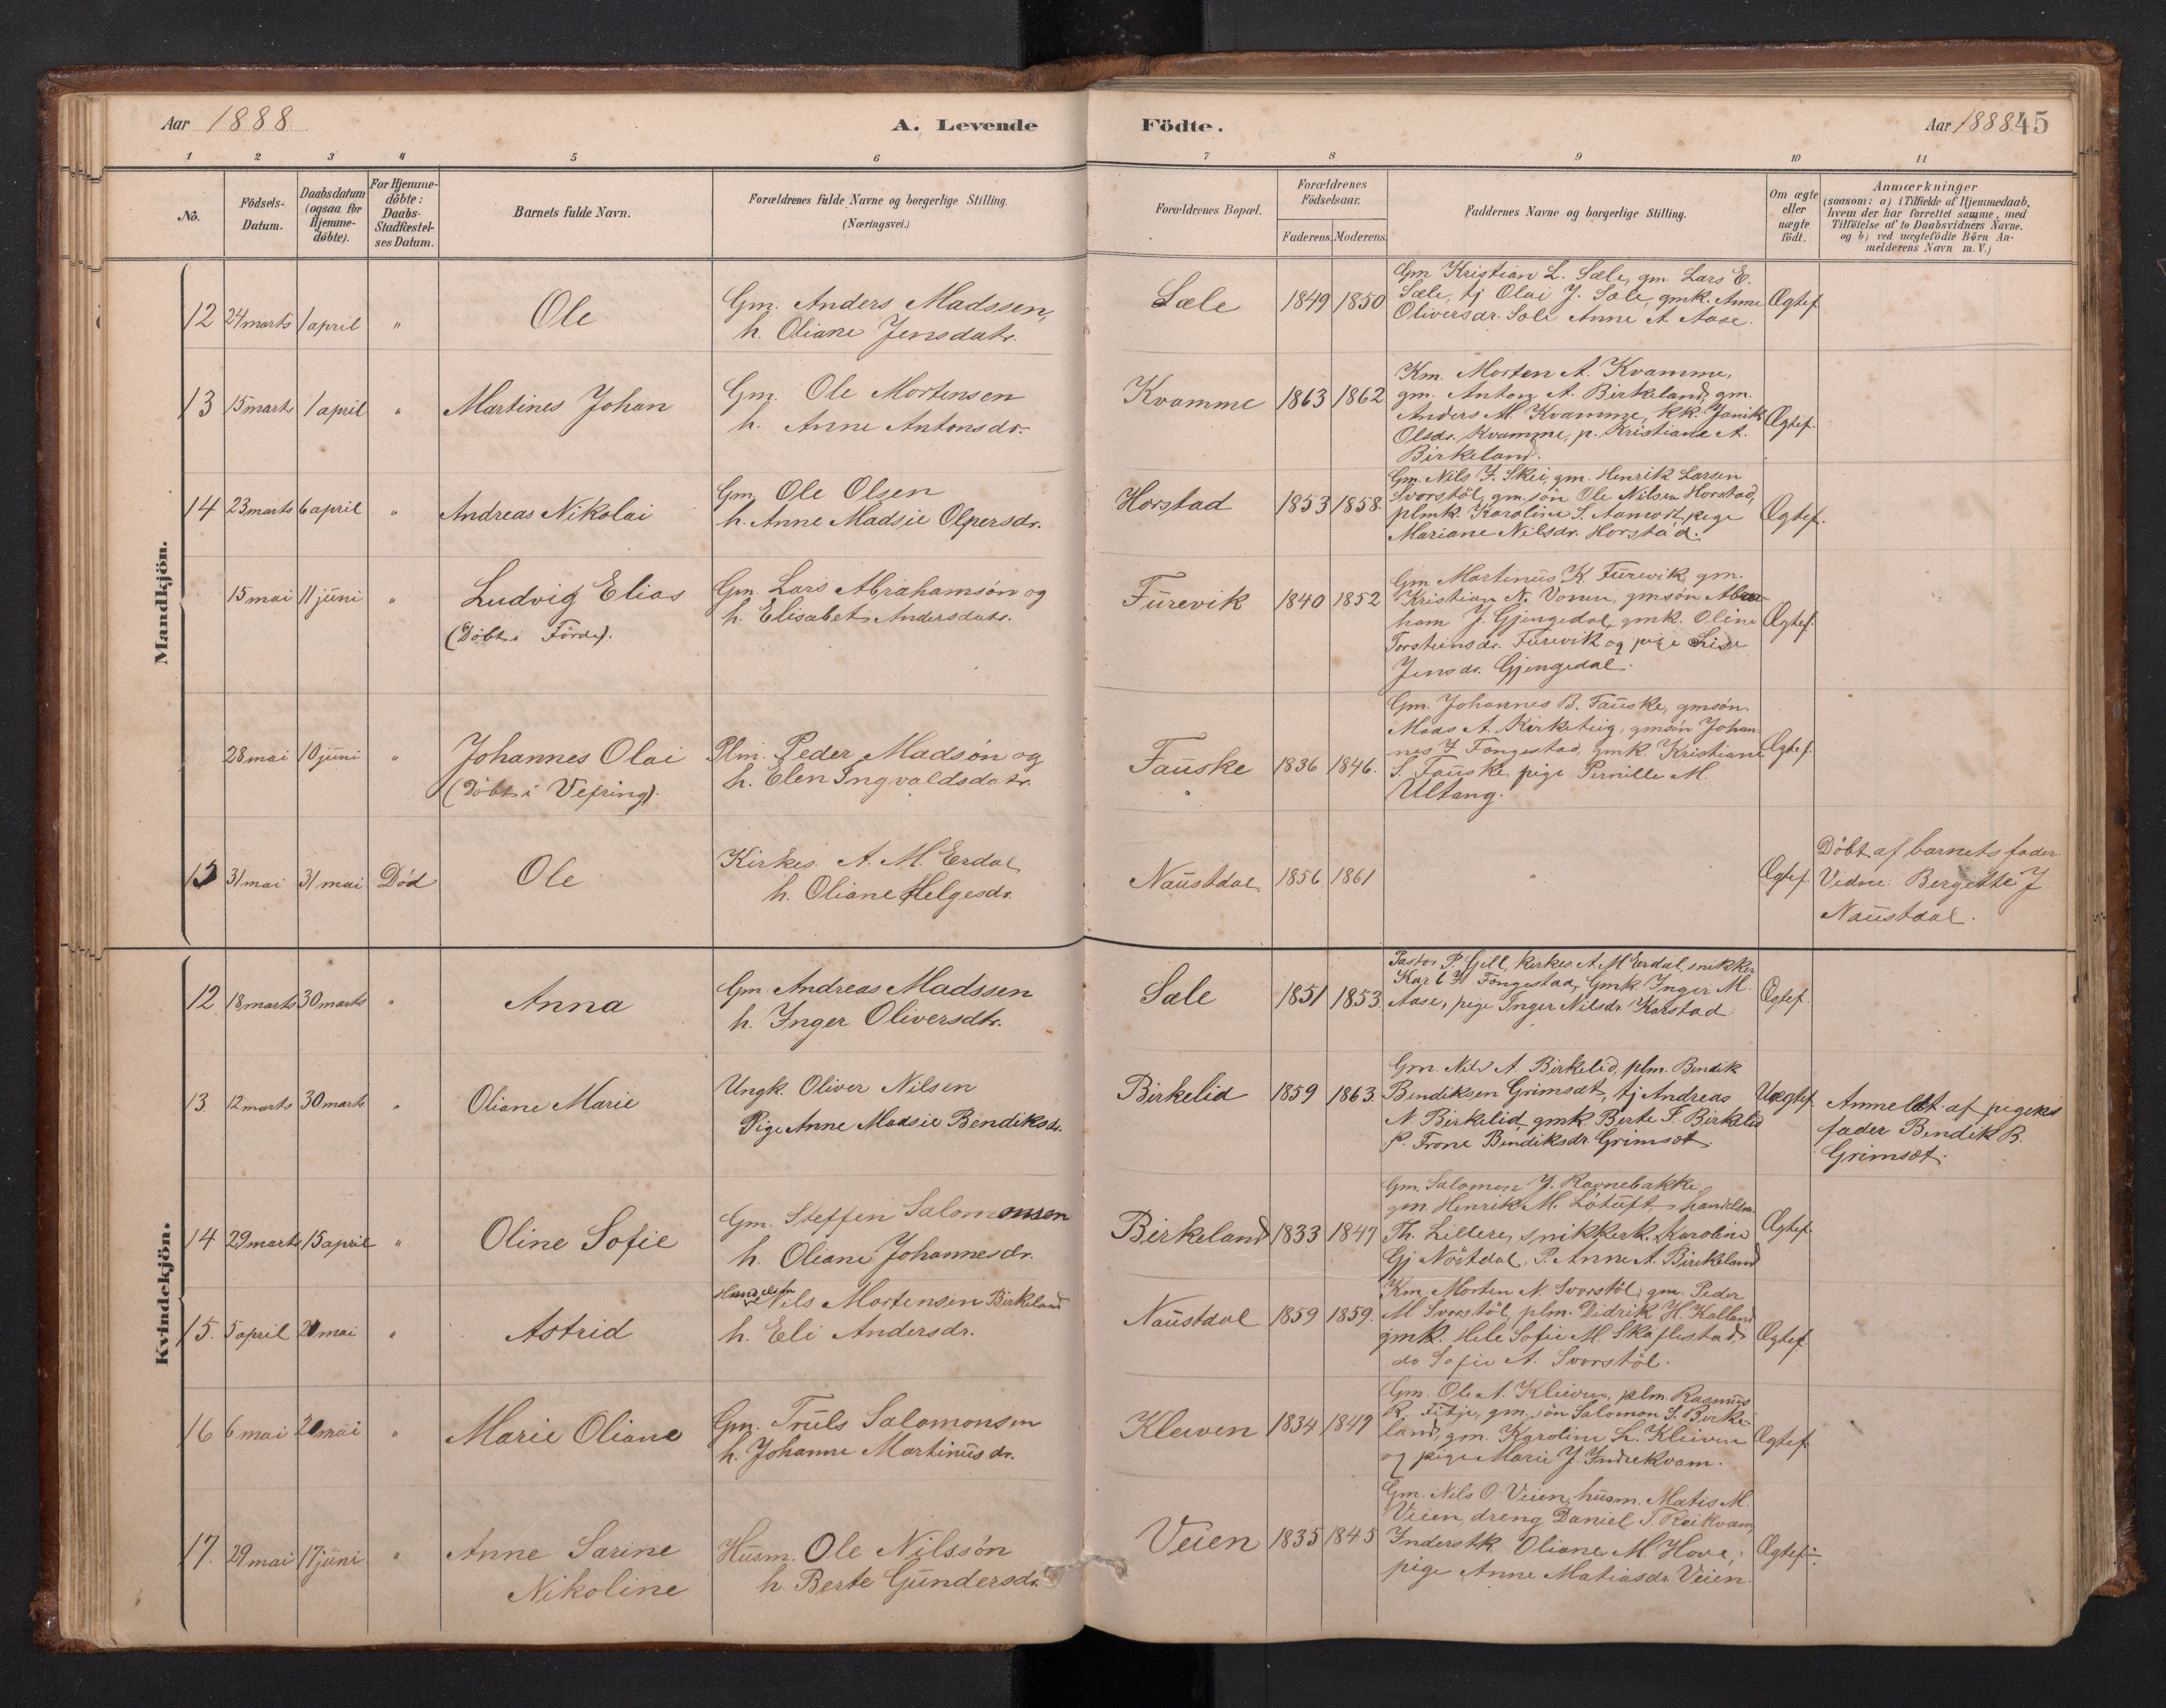 Aar 1888. A. Levende Födte. Aar 1888. 45
1 2 3 4 5 6 7 8 9 10 11
No.
Födsels-
Datum.
Daabsdatum
(ogsaa for
Hjemme-
döbte).
For Hjemme-
döbte:
Daabs-
Stadfæstel-
ses Datum.
Barnets fulde Navn.
Forældrenes fulde Navne og borgerlige Stilling.
(Næringsvei.)
Forældrenes Bopæl.
Forældrenes
Födselsaar.
Faderens. Moderens.
Faddernes Navne og borgerlige Stilling.
Om ægte
eller
uægte
födt.
Anmærkninger
(saasom: a) i Tilfælde af Hjemmedaab,
hvem der har forrettet samme, med
Tilföielse af to Daabsvidners Navne.
og b) ved uægtefödte Börn An-
melderens Navn m. V.)
Mandkjön.
12 24 marts 1 april " Ole
Gm. Anders Madssen,
h. Oliane Jensdatr.
Sæle 1849 1850
Gm Kristian L. Sæle, gm. Lars E.
Sæle, tj Olai J. Sæle, gmk. Anne
Oliversdr. Sole Anne A. Aase.
Ægtef
13 15 marts 1 april " Martines Johan
Gm. Ole Mortensen
h. Anne Antonsdr.
Kvamme 1863 1862
Km. Morten A. Kvamme,
gm. Anton A. Birkeland, gm.
Anders M. Kvamme, kk. Janik
Olsdr. Kvamme, p. Kristiane A.
Birkeland.
Ægtef.
14 23 marts 6 april " Andreas Nikolai
Gm. Ole Olsen
h. Anne Madsie Olpersdr.
Horstad 1853 1858.
Gm. Nils J. Skei, gm. Henrik Larsen
Svorstöl, gm. sön Ole Nilsen Horstad,
plmk. Karoline S. pige
Mariane Nilsdr. Horstad.
Ægtef.
15 mai 11 juni " Ludvig Elias
(Döbt i Förde).
Gm. Lars Abrahamsön og
h. Elisabet Andersdatr.
Furevik 1840 1852
Gm Martinus K. Furevik, gm.
Kristian N. Vonen, gmsön Abra-
ham J. Gjengedal, gmk. Oline
Torsteinsdr. Furevik og pige Lise
Jensdr. Gjengedal.
Ægtef.
28 mai 10 juni " Johannes Olai
(Döbt i Vefring).
Plm. Peder Madsön og
h. Elen Ingvaldsdatr.
Fauske 1836 1846.
Gm. Johannes B. Fauske, gmsön.
Mads A. Kirketeig, gmsön Johan-
nes J Fongestad, gmk. Kristiane
S. Fauske, pige Pernille M.
Ultang.
Ægtef.
15 31 mai 31 mai Död Ole
Kirkes. A. M. Erdal
h. Oliane Helgesdr.
Naustdal 1856 1861 " Ægtef.
Döbt af barnets fader
Vidne: Bergitte J.
Naustdal.
Kvindekjön.
12 18 marts 30 marts " Anna
Gm. Andreas Madssen
h. Inger Oliversdtr.
Sæle 1851 1853.
Pastor P. Gill, kirkes. A. M. Erdal, snikker
Karl H Fongestad, Gmk Inger M.
Aase, pige Inger Nilsdr Karstad.
Ægtef.
13. 12 marts 30 marts " Oliane Marie
Ungk. Oliver Nilsen
Pige Anne Madsie Bendiksdr.
Birkelid 1859 1863.
Gm. Nils A. Birkelid, plm. Bendik
Bendiksen Grimsæt, tj Andreas
N Birkelid, gmk. Berte F. Birkelid
P. Trone Bendiksdr. Grimsæt.
Uægtef.
Anmeldt af pigens
fader Bendik B.
Grimsæt.
14 29 marts 15 april " Oline Sofie
Gm. Steffen Salomonsen
h. Oliane Johannesdr.
Birkeland 1833 1847
Gm. Salomon J. Ravnebakke
gm. Henrik M. Lötuft, handelsm.
Th. Lillere, snikkerk. Karoline
Gj Nöstdal, P. Anne A. Birkeland
Ægtef.
15. 5 april 20 mai " Astrid
Handelsm
Nils Mortensen Birkeland
h. Eli Andersdr.
Naustdal 1859 1859.
Km. Morten N. Svorstöl, gm. Peder
M Svorstöl, plm. Didrik H. Kalland
gmk. Hele Sofie M. Skaflestad
do Sofie A. Svorstöl.
Ægtef
16 6 mai 20 mai " Marie Oliane
Gm. Truls Salomonsen
h. Johanne Martinusdr.
Kleiven 1834 1849
Gm. Ole A. Kleiven, plm. Rasmus
R. Fitje, gm. sön Salomon S. Birke-
land, gm. Karoline L. Kleiven
og pige Marie J. Indrekvam.
Ægtef.
17. 29 mai 17 juni " Anne Sarine
Nikoline
Husm. Ole Nilssön
h. Berte Gundersdr.
Veien 1835 1845
Gm. Nils O. Veien, husm. Matis M.
Veien, dreng Daniel T. Reikvam,
Inderstk. Oliane M. Hove,
pige Anne Matiasdr Veien.
Ægtef.